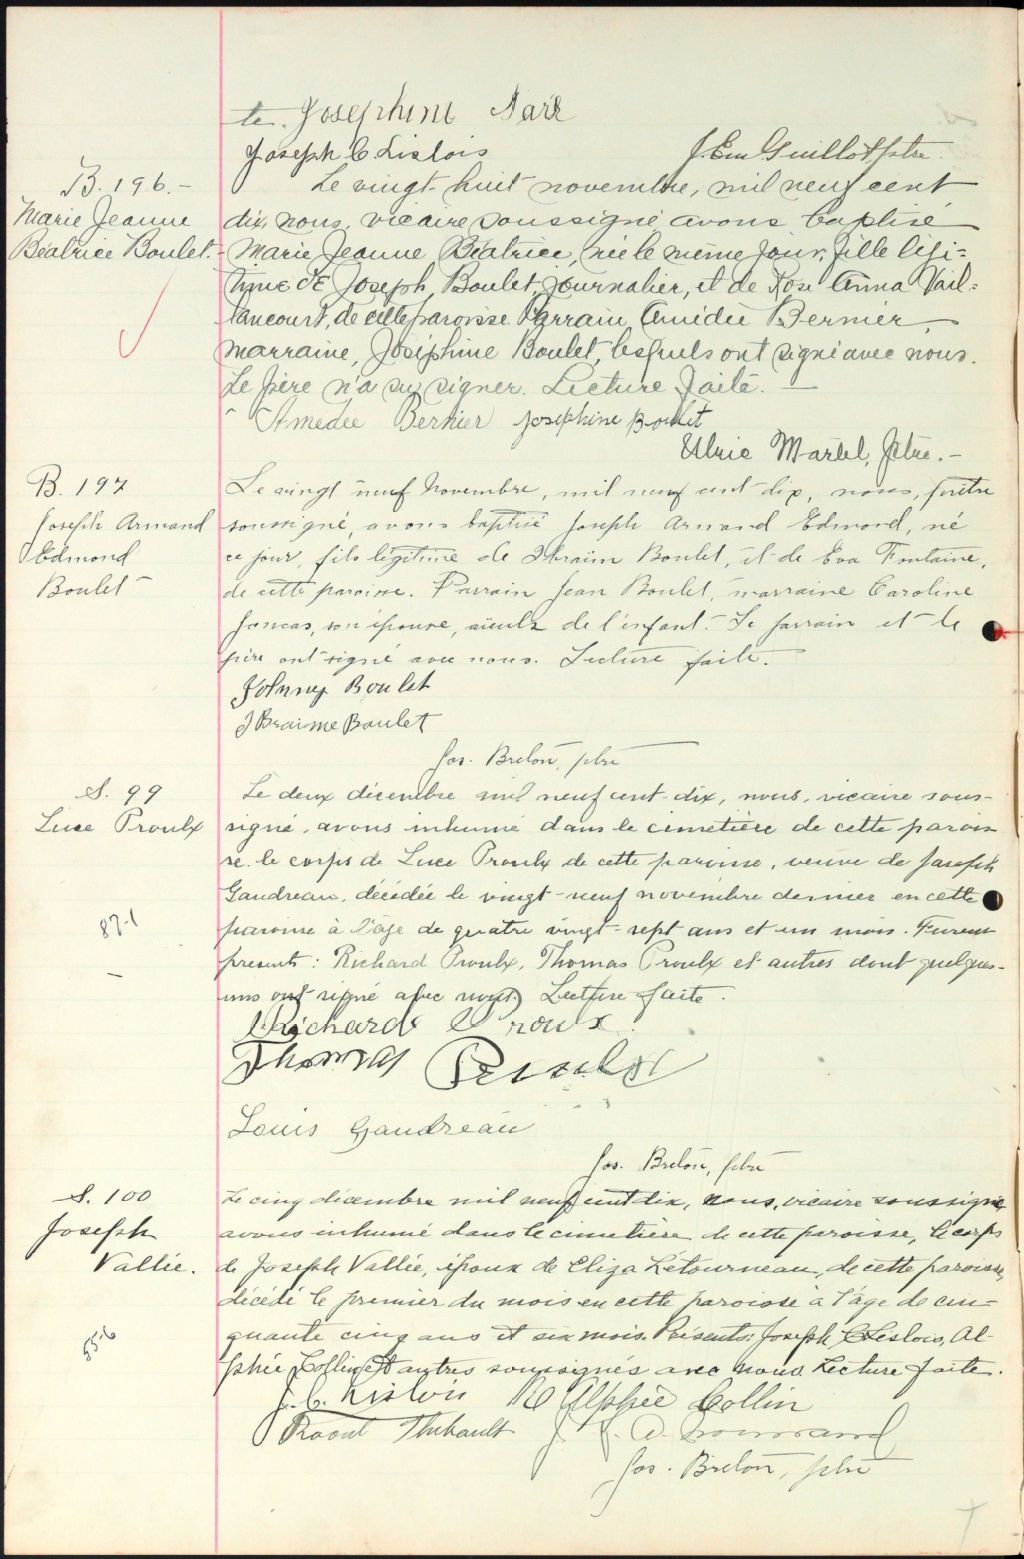 te. Josephine Narc
Joseph C. Lislois J. Em Guillot ptre.
B. 196.-
Marie Jeanne
Béatrice Boulet.
Le vingt-huit novembre, mil neuf cent
dix, nous, vicaire soussigné avons baptisé
Marie Jeanne Béatrice, née le même jour, fille légi-
time de Joseph Boulet, journalier, et de Rose Anna Vail-
lancourt, de cette paroisse. Parrain, Amédée Bernier,
marraine, Joséphine Boulet, lesquels ont signé avec nous.
Le père n'a su signer. Lecture faite.-
Amedée Bernier Josephine Boulet
Ulric Martel, Ptre.-
B. 197
Joseph Armand
Edmond
Boulet
Le vingt neuf Novembre, mil neuf cent dix, nous, prêtre
soussigné, avons baptisé Joseph Armand Edmond, né
ce jour, fils légitime de Ibraim Boulet, et de Eva Fontaine,
de cette paroisse. Parrain Jean Boulet, marraine Caroline
Joncas, son épouse, aieuls de l'enfant. Le parrain et le
père ont signé avec nous. Lecture faite.
Johnny Boulet
I Braime Boulet
Jos. Breton, ptre
S. 99
Luce Proulx
87-1
Le deux décembre mil neuf cent-dix, nous, vicaire sous-
signé, avons inhumé dans le cimetière de cette parois
se. le corps de Luce Proulx de cette paroisse, veuve de Joseph
Gaudreau, décédée le vingt-neuf novembre dernier en cette
paroisse à l'âge de quatre vingt-sept ans et un mois. Furent
presents: Richard Proulx, Thomas Proulx et autres dont quelques-
uns ont signé avec nous. Lecture faite.
Richard Proulx
Thomas Proulx
Louis Gaudreau
Jos. Breton, ptre
S. 100
Joseph
Vallée.
55-6
Le cinq décembre mil neuf cent dix, nous, vicaire soussigné,
avons inhumé dans le cimetière de cette paroisse, le corps
de Joseph Vallée, époux de Eliza Létourneau, de cette paroisse,
décédé le premier du mois en cette paroisse à l'âge de cin-
quante cinq ans et six mois. Présents: Joseph C Leslois, Al-
phée Collin et autres soussignés avec nous. Lecture faite.
J. C. Lislois Alphée Collin
Raoul Thibault J.
Jos. Breton, ptre